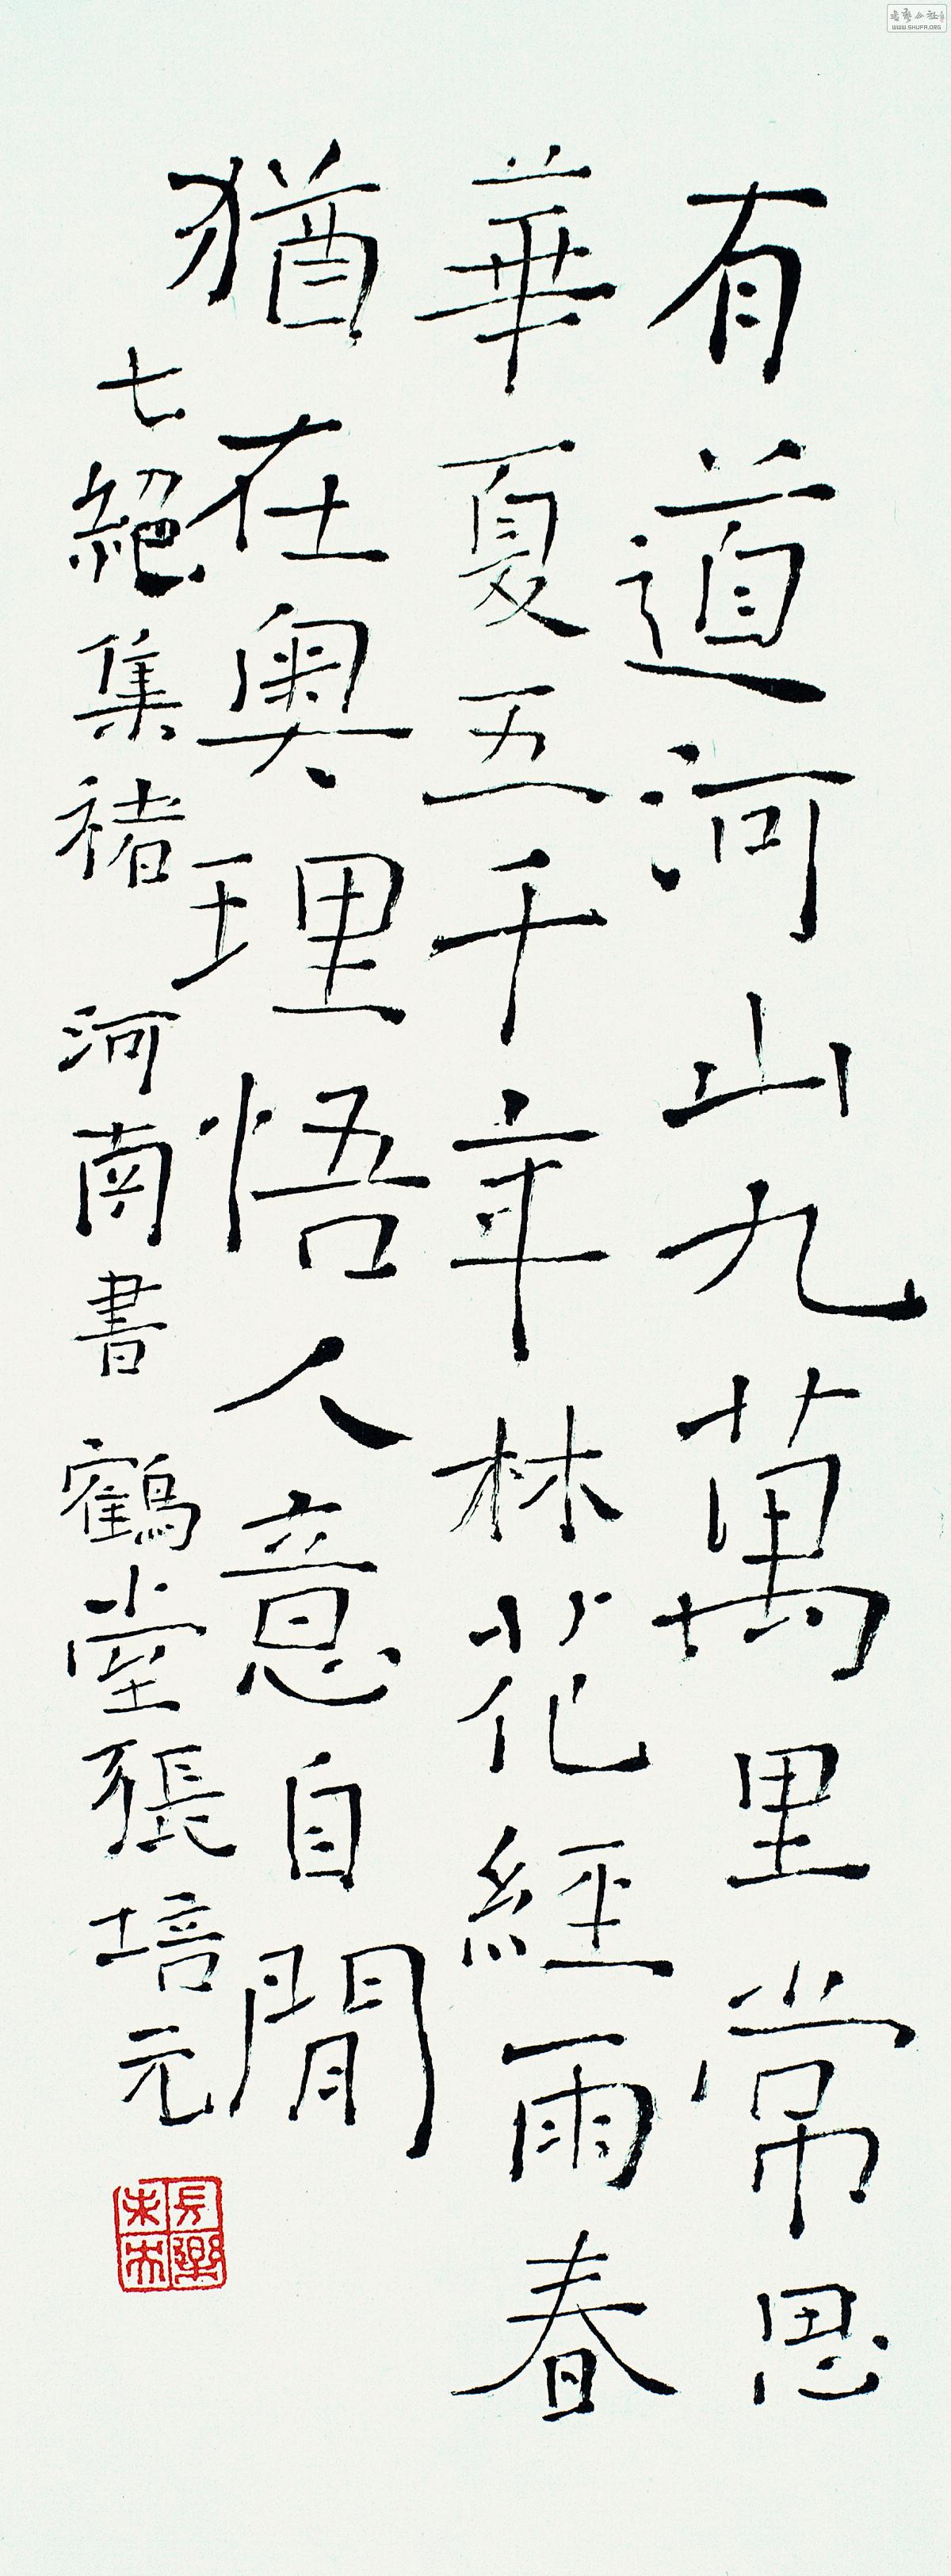 有道河山九萬里常思
華夏五千年林花經雨春
猶在奧理悟人意自閒
七絕集褚河南書鶴堂張培元
長樂未央
WWW.SHUFA.ORG